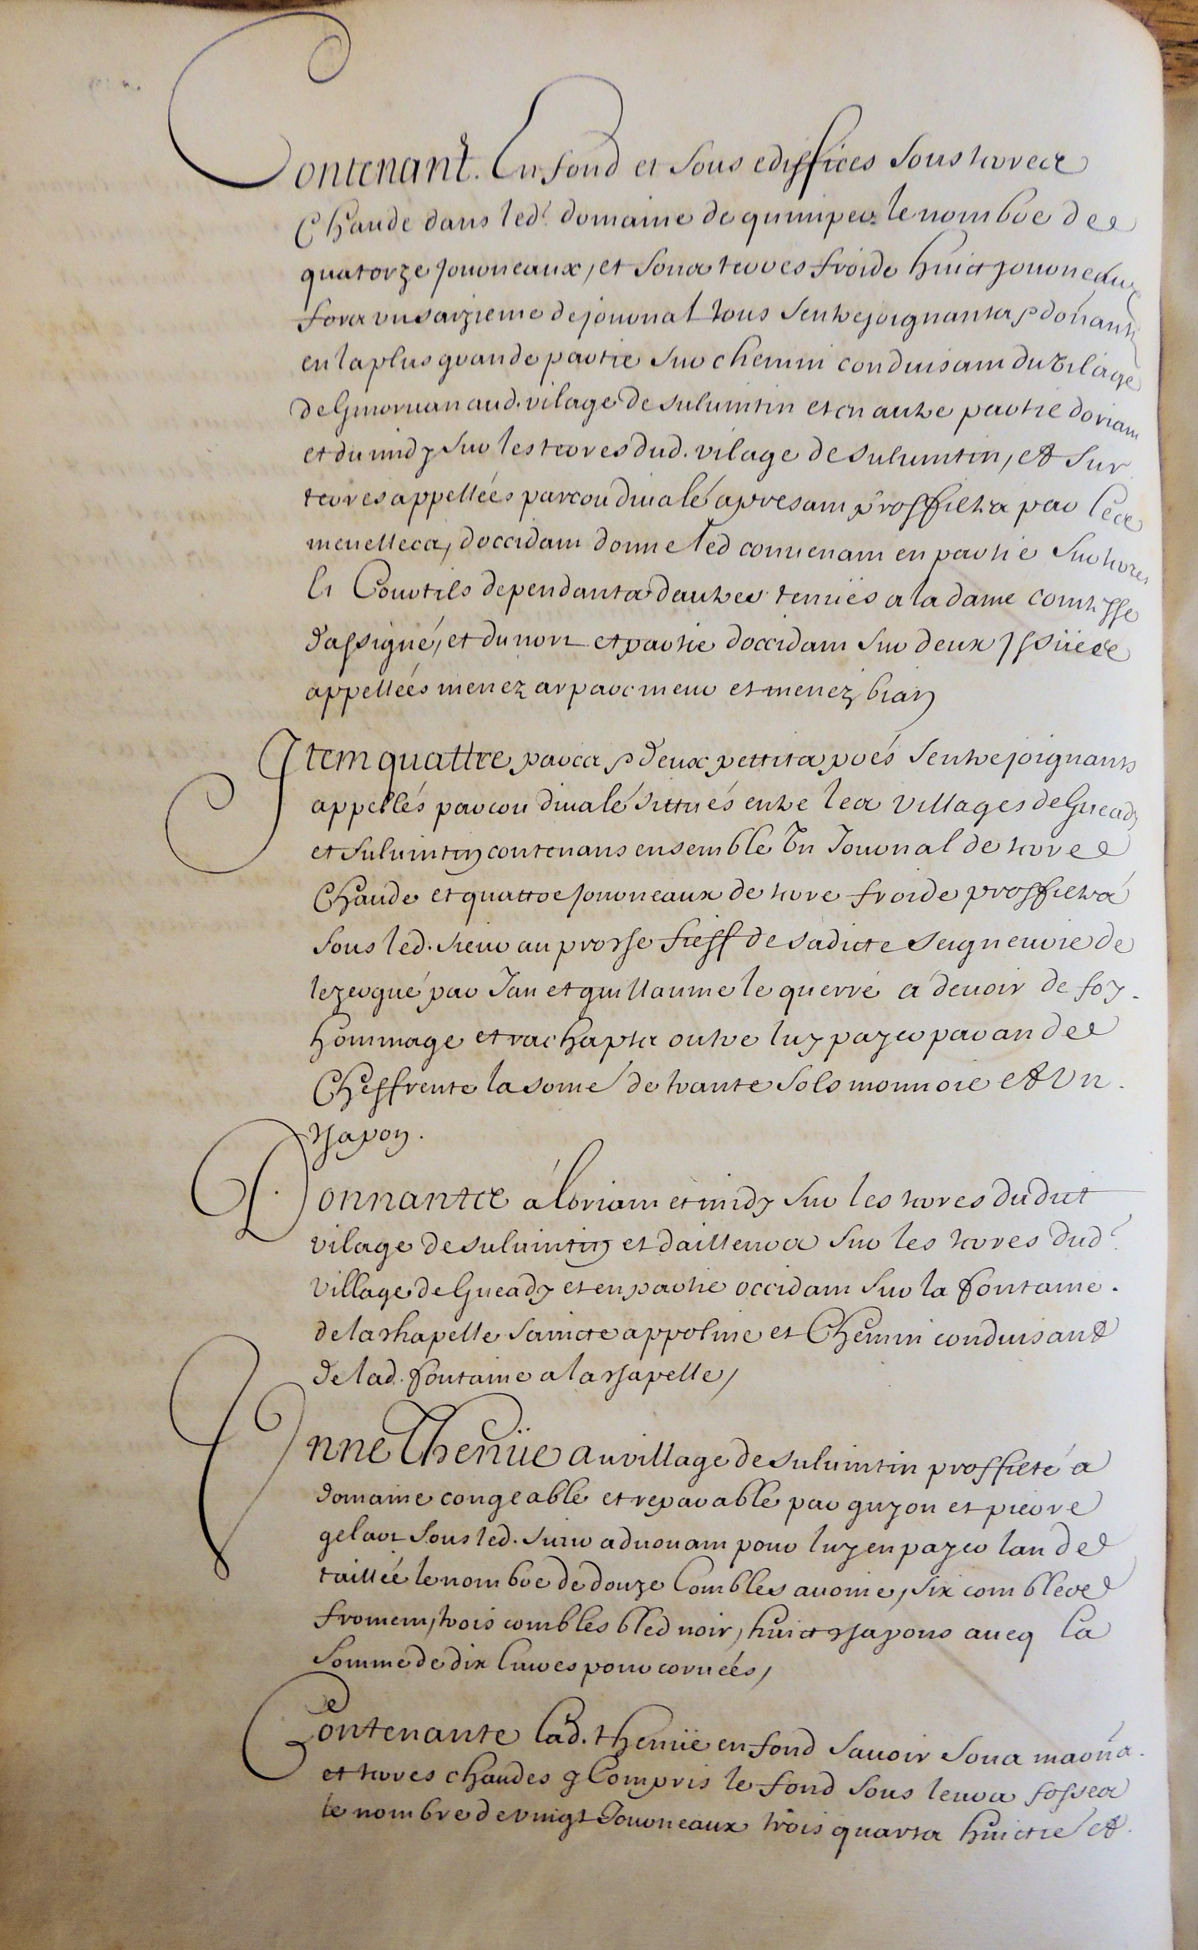 Contenant. En fond et sous ediffices sous terres
Chaude dans led.t domaine de quimper le nombre de
quatorze journeaux, et sous terres froide huict journeaux
fors un saizieme de journal tous s'entrejoignants, donants
en la plus grande partie sur chemin conduisant du vilage
de aud. vilage de suluintin et en autre partie doriant
et du midy sur les terres dud. vilage de suluintin, et sur
terres appellées parcou divalé apresant proffitta par lece
menettecz, doccidant donne led convenant en partie sur terres
et Courtils dependants dautres tenües a la dame comtesse
dassigné, et du nort et partie doccidant sur deux issües
appellées menez ar parc meur et menez bian
Item quattre parcs, deux pettits prés s'entrejoignants
appellés parcou divalé sittués entre les villages de
et suluintin contenans ensemble Un Journal de terre
Chaude et quattre journeaux de terre froide proffitta
sous led. sieur au proche fieff de sadicte seigneurie de
lezergué par Jan et guillaume le querré a devoir de foy.
hommage et rachapts outre luy payer par an de
Cheffrente la some de trante sols monnoie et Un.
chapon.
Donnants a loriant et midy sur les terres dudict
vilage de suluintin et dailleurs sur les terres dud.t
village de et en partie occidant sur la fontaine.
de la chapelle saincte appoline et Chemin conduisant
de lad. fontaine a la chapelle,
Unne Thenüe au village de suluintin proffitté a
domaine congeable et reparable par guyon et pierre
gelart sous led. sieur advouant pour luy en payer lan de
taillée le nombre de douze Combles avoine, six combles
froment, trois combles bled noir, huict chapons aveq la
somme de dix livres pour corvées,
Contenante lad. thenüe en fond savoir sous maisons
et terres chaudes y Compris le fond sous leurs fosses
le nombre de vingt Journeaux trois quarts huictié et.